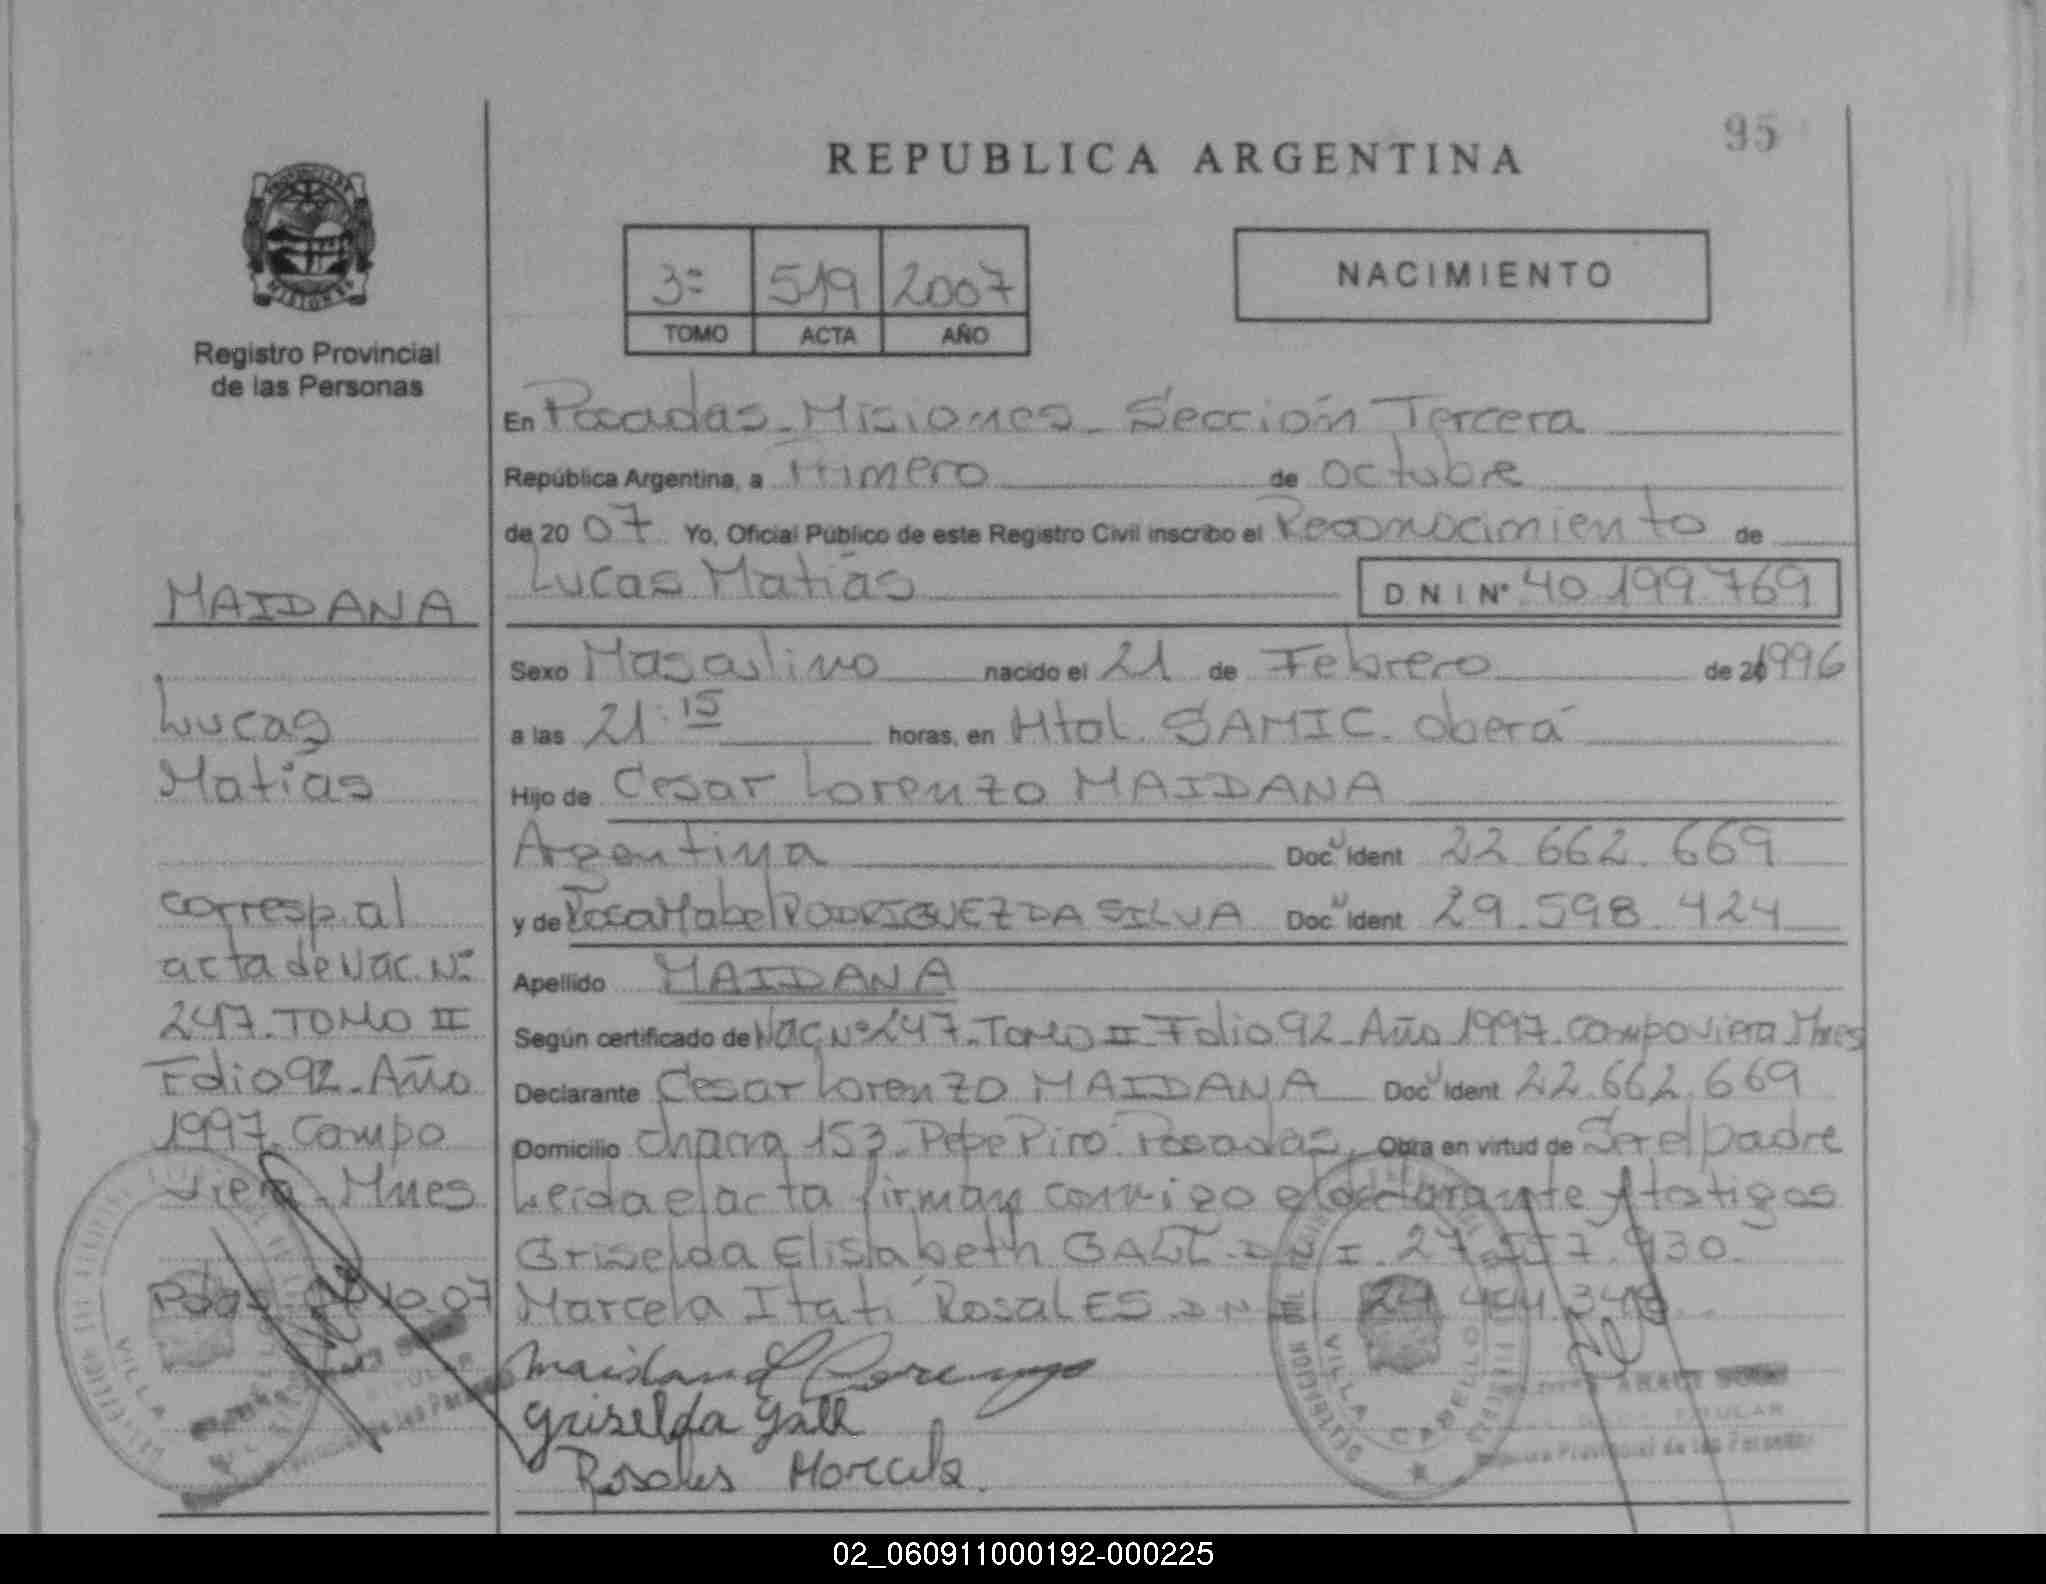 95
REPUBLICA ARGENTINA
3º 519 2007
TOMO ACTA AÑO
NACIMIENTO
Registro Provincial
de las Personas
En Posadas - Misiones - Sección Tercera
República Argentina, a Primero de octubre
de 20 07 Yo, Oficial Público de este Registro Civil inscribo el Reconocimiento de
Lucas Matías DNI Nº 40.199.769
Sexo Masculino nacido el 21 de Febrero de 1996
a las 21:15 horas, en Htal. SAMIC. oberá
Hijo de Cesar Lorenzo MAIDANA
Argentina Doc. Ident 22.662.669
y de Rosa Mabel RODRIGUEZ DA SILVA Doc. Ident 29.598.424
Apellido MAIDANA
Según certificado de Nac Nº 247. Tomo II Folio 92 - Año 1997. Campo Viera Mnes
Declarante Cesar Lorenzo MAIDANA Doc. Ident 22.662.669
Domicilio Chacra 153 - Pepe Piró. Posadas. Obra en virtud de Ser el padre
Leída el acta firman conmigo el declarante y testigos
Griselda Elisabeth GALL - D.N.I. 27. 930.
Marcela Itatí RosalES D N I 24.444.348
Maidana Lorenzo
Griselda Gall
Rosales Marcela.
MAIDANA
Lucas
Matías
corresp. al
acta de Nac. Nº
247. TOMO II
Folio 92 - Año
1997. Campo
Viera - Mnes
Pdas. 10.07
VILLA CABELLO
VILLA
TITULAR
Registro Provincial de las Personas
02_060911000192-000225